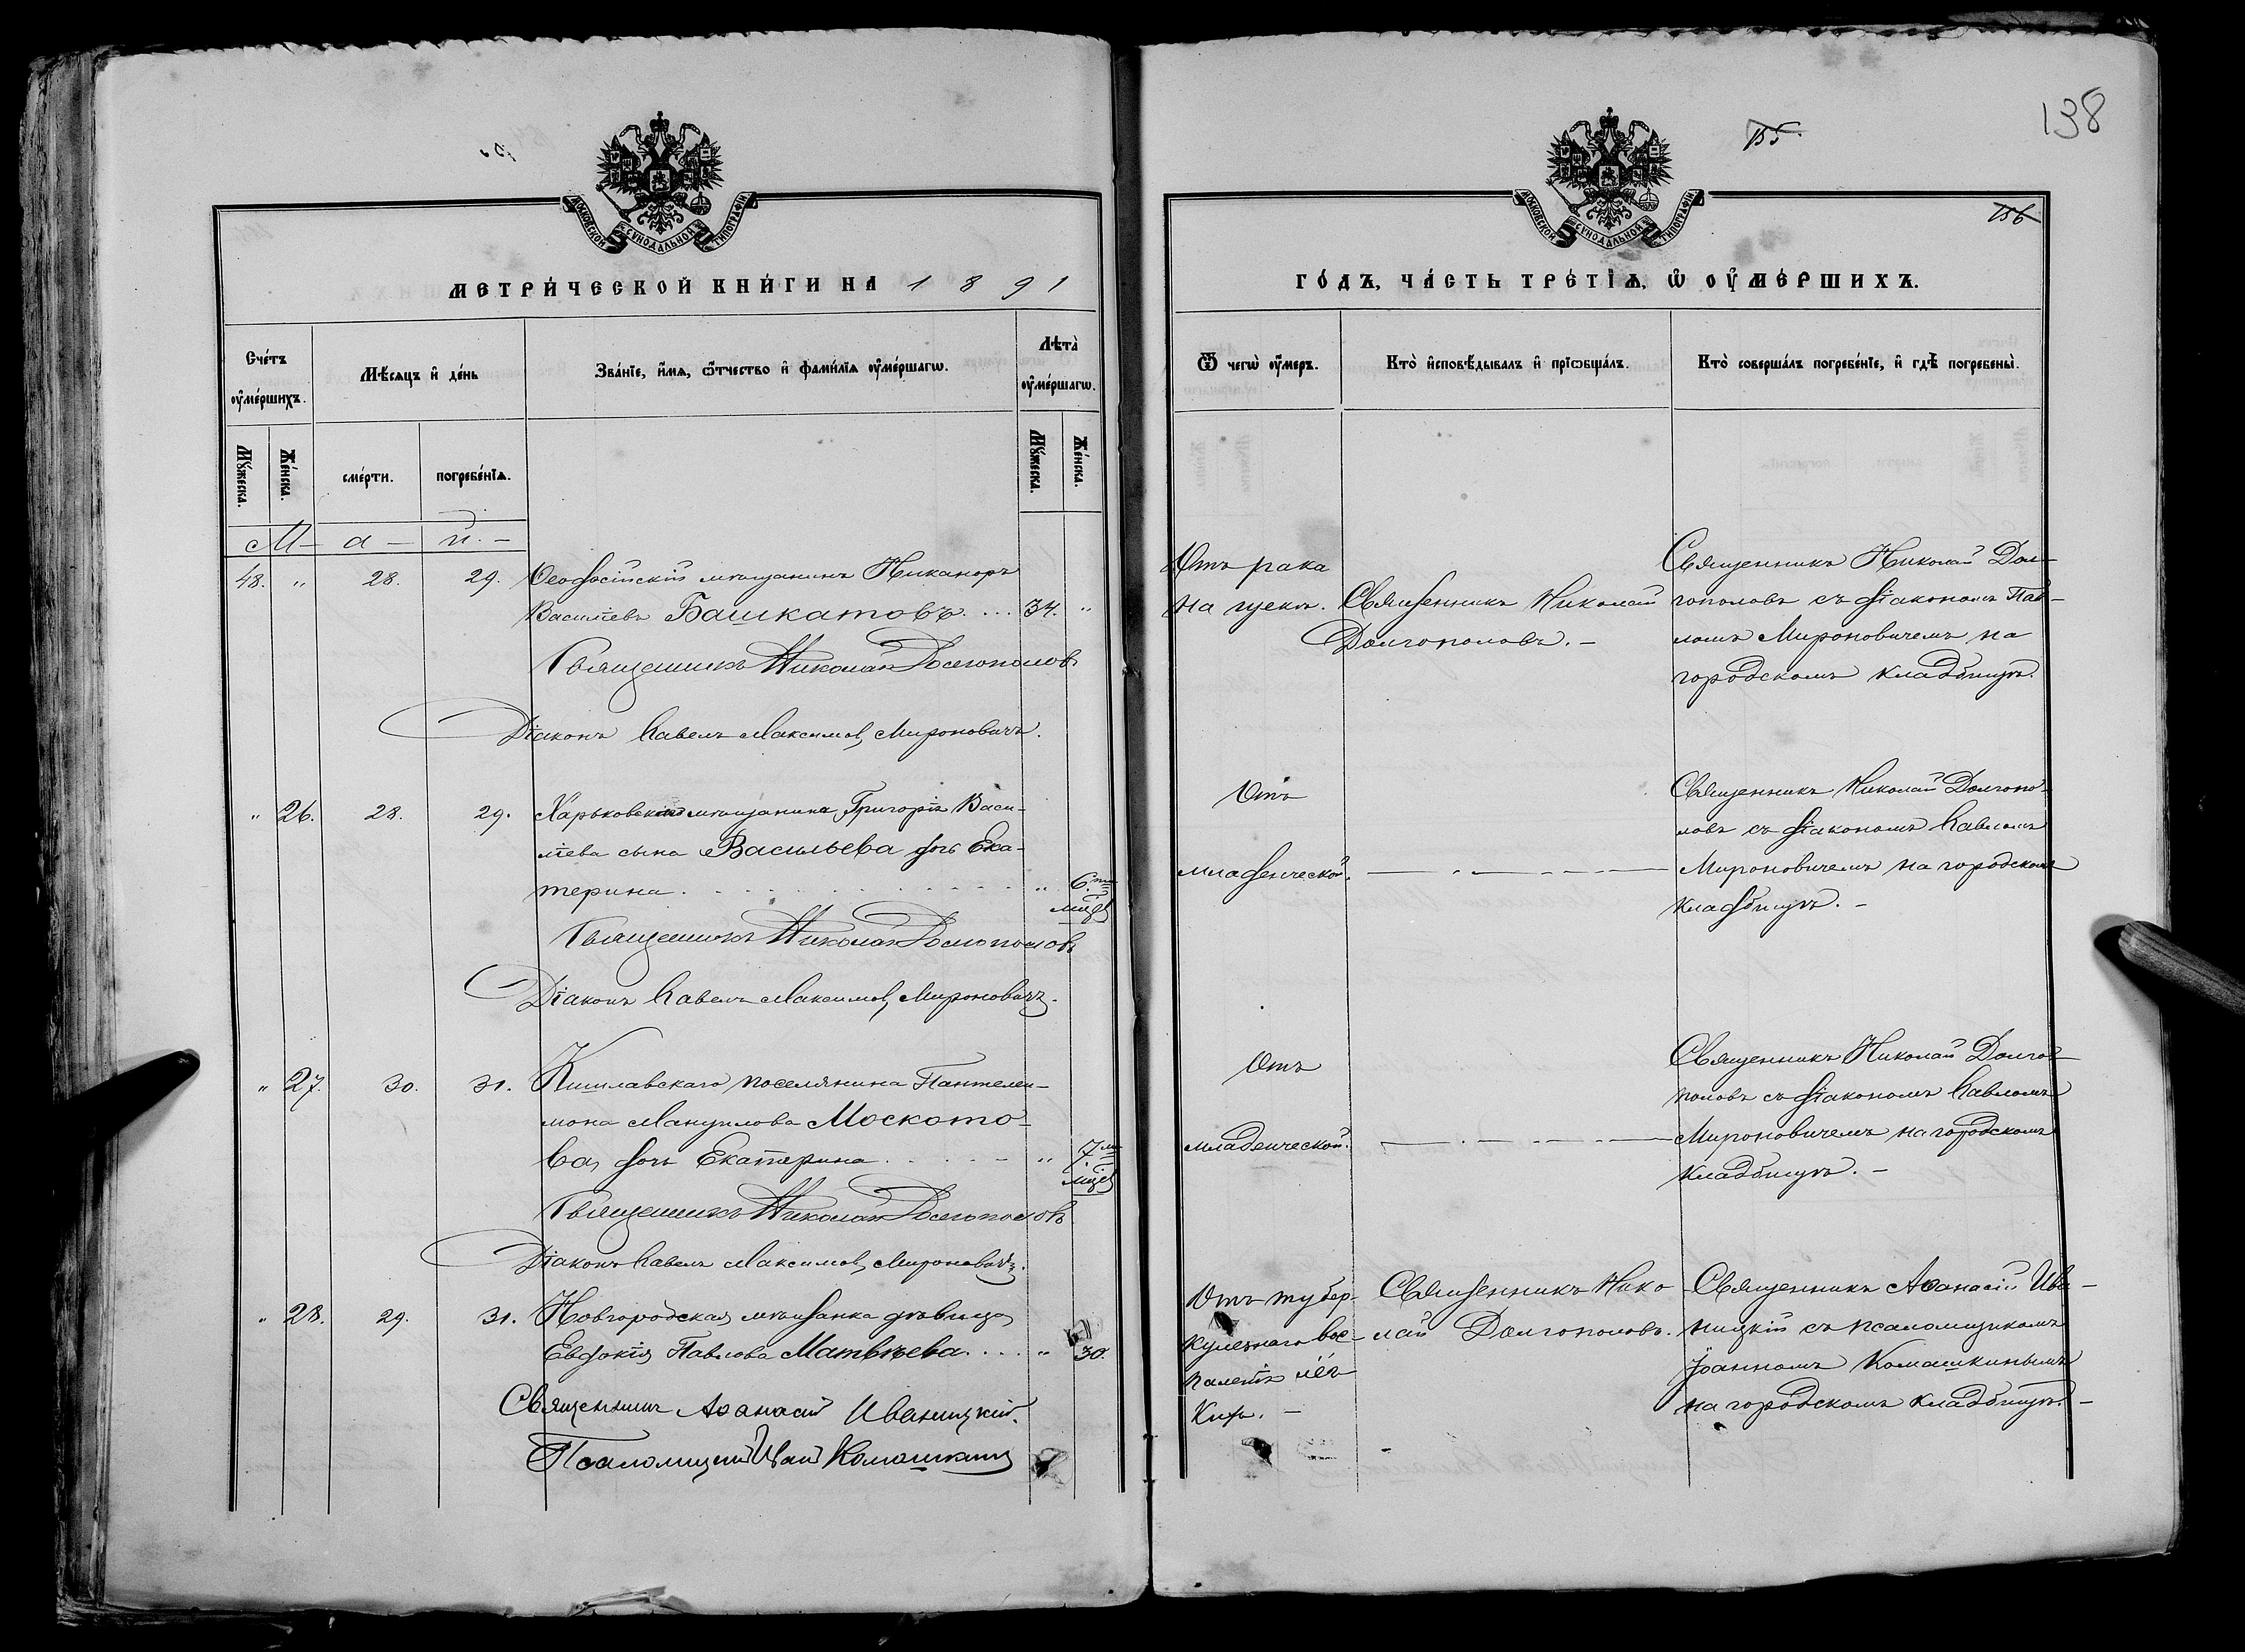 138
155.
156
МОСКОВСКОЙ СѴНОДАЛЬНОЙ ТИПОГРАФІИ
МОСКОВСКОЙ СѴНОДАЛЬНОЙ ТИПОГРАФІИ
МЕТРИ́ЧЕСКОЙ КНИ́ГИ НА 1891
ГО́ДЪ, ЧА́СТЬ ТРЕ́ТІѦ, Ѡ҆ ОУ҆МЕ́РШИХЪ.
Сче́тъ оу҆ме́ршихъ.
Мѣ́сяцъ и҆ де́нь
Зва́нїе, и҆́мѧ, ѻ҆́тчество и҆ фами́лїѧ оу҆ме́ршагѡ.
Лѣта̀ оу҆ме́ршагѡ.
Ѿ чегѡ̀ оу҆́меръ.
Кто̀ и҆сповѣ́дывалъ и҆ прїѡбща́лъ.
Кто̀ соверша́лъ погребе́нїе, и҆ гдѣ̀ погребены̀.
Мꙋ́жеска.
Же́нска.
сме́рти.
погребе́нїѧ.
Мꙋ́жеска.
Же́нска.
М - а - й. -
48. " 28. 29. Ѳеодосійскій мѣщанинъ Никаноръ
Василіевъ Башкатовъ. ... 34. "
Священникъ Николай Долгополовъ
Діаконъ Павелъ Максимов. Мироновичъ.
Отъ рака
на щекѣ.
Священникъ Николай
Долгополовъ. -
Священникъ Николай Дол-
гополовъ съ діакономъ Пав-
ломъ Мироновичемъ на
городскомъ кладбищѣ.
" 26. 28. 29. Харьковскаго мѣщанина Григорія Васи-
ліева сына Васильева дочь Ека-
терина. " 6.ти
мѣц.
Священникъ Николай Долгополовъ
Діаконъ Павелъ Максимов. Мироновичъ.
Отъ
младенческой.
Священникъ Николай Долгопо-
ловъ съ діакономъ Павломъ
Мироновичемъ на городскомъ
кладбищѣ. -
" 27. 30. 31. Кишлавскаго поселянина Пантелеи-
мона Мануилова Моското-
ва, дочь Екатерина " 7ми
мѣц.
Священникъ Николай Долгополовъ
Діаконъ Павелъ Максимов. Мироновичъ.
Отъ
младенческой.
Священникъ Николай Долго-
половъ съ діакономъ Павломъ
Мироновичемъ на городскомъ
кладбищѣ. -
" 28. 29. 31. Новгородская мѣщанка дѣвица
Евдокія Павлова Матвѣева. ... " 30.
Священникъ Аѳанасій Иваницкій.
Псаломщикъ Иван Комашкинъ
Отъ тубер-
кулезнаго вос-
паленія лёг-
кихъ. -
Священникъ Нико-
лай Долгополовъ.
Священникъ Аѳанасій Ива-
ницкій съ псаломщикомъ
Іоанномъ Комашкинымъ
на городскомъ кладбищѣ. -